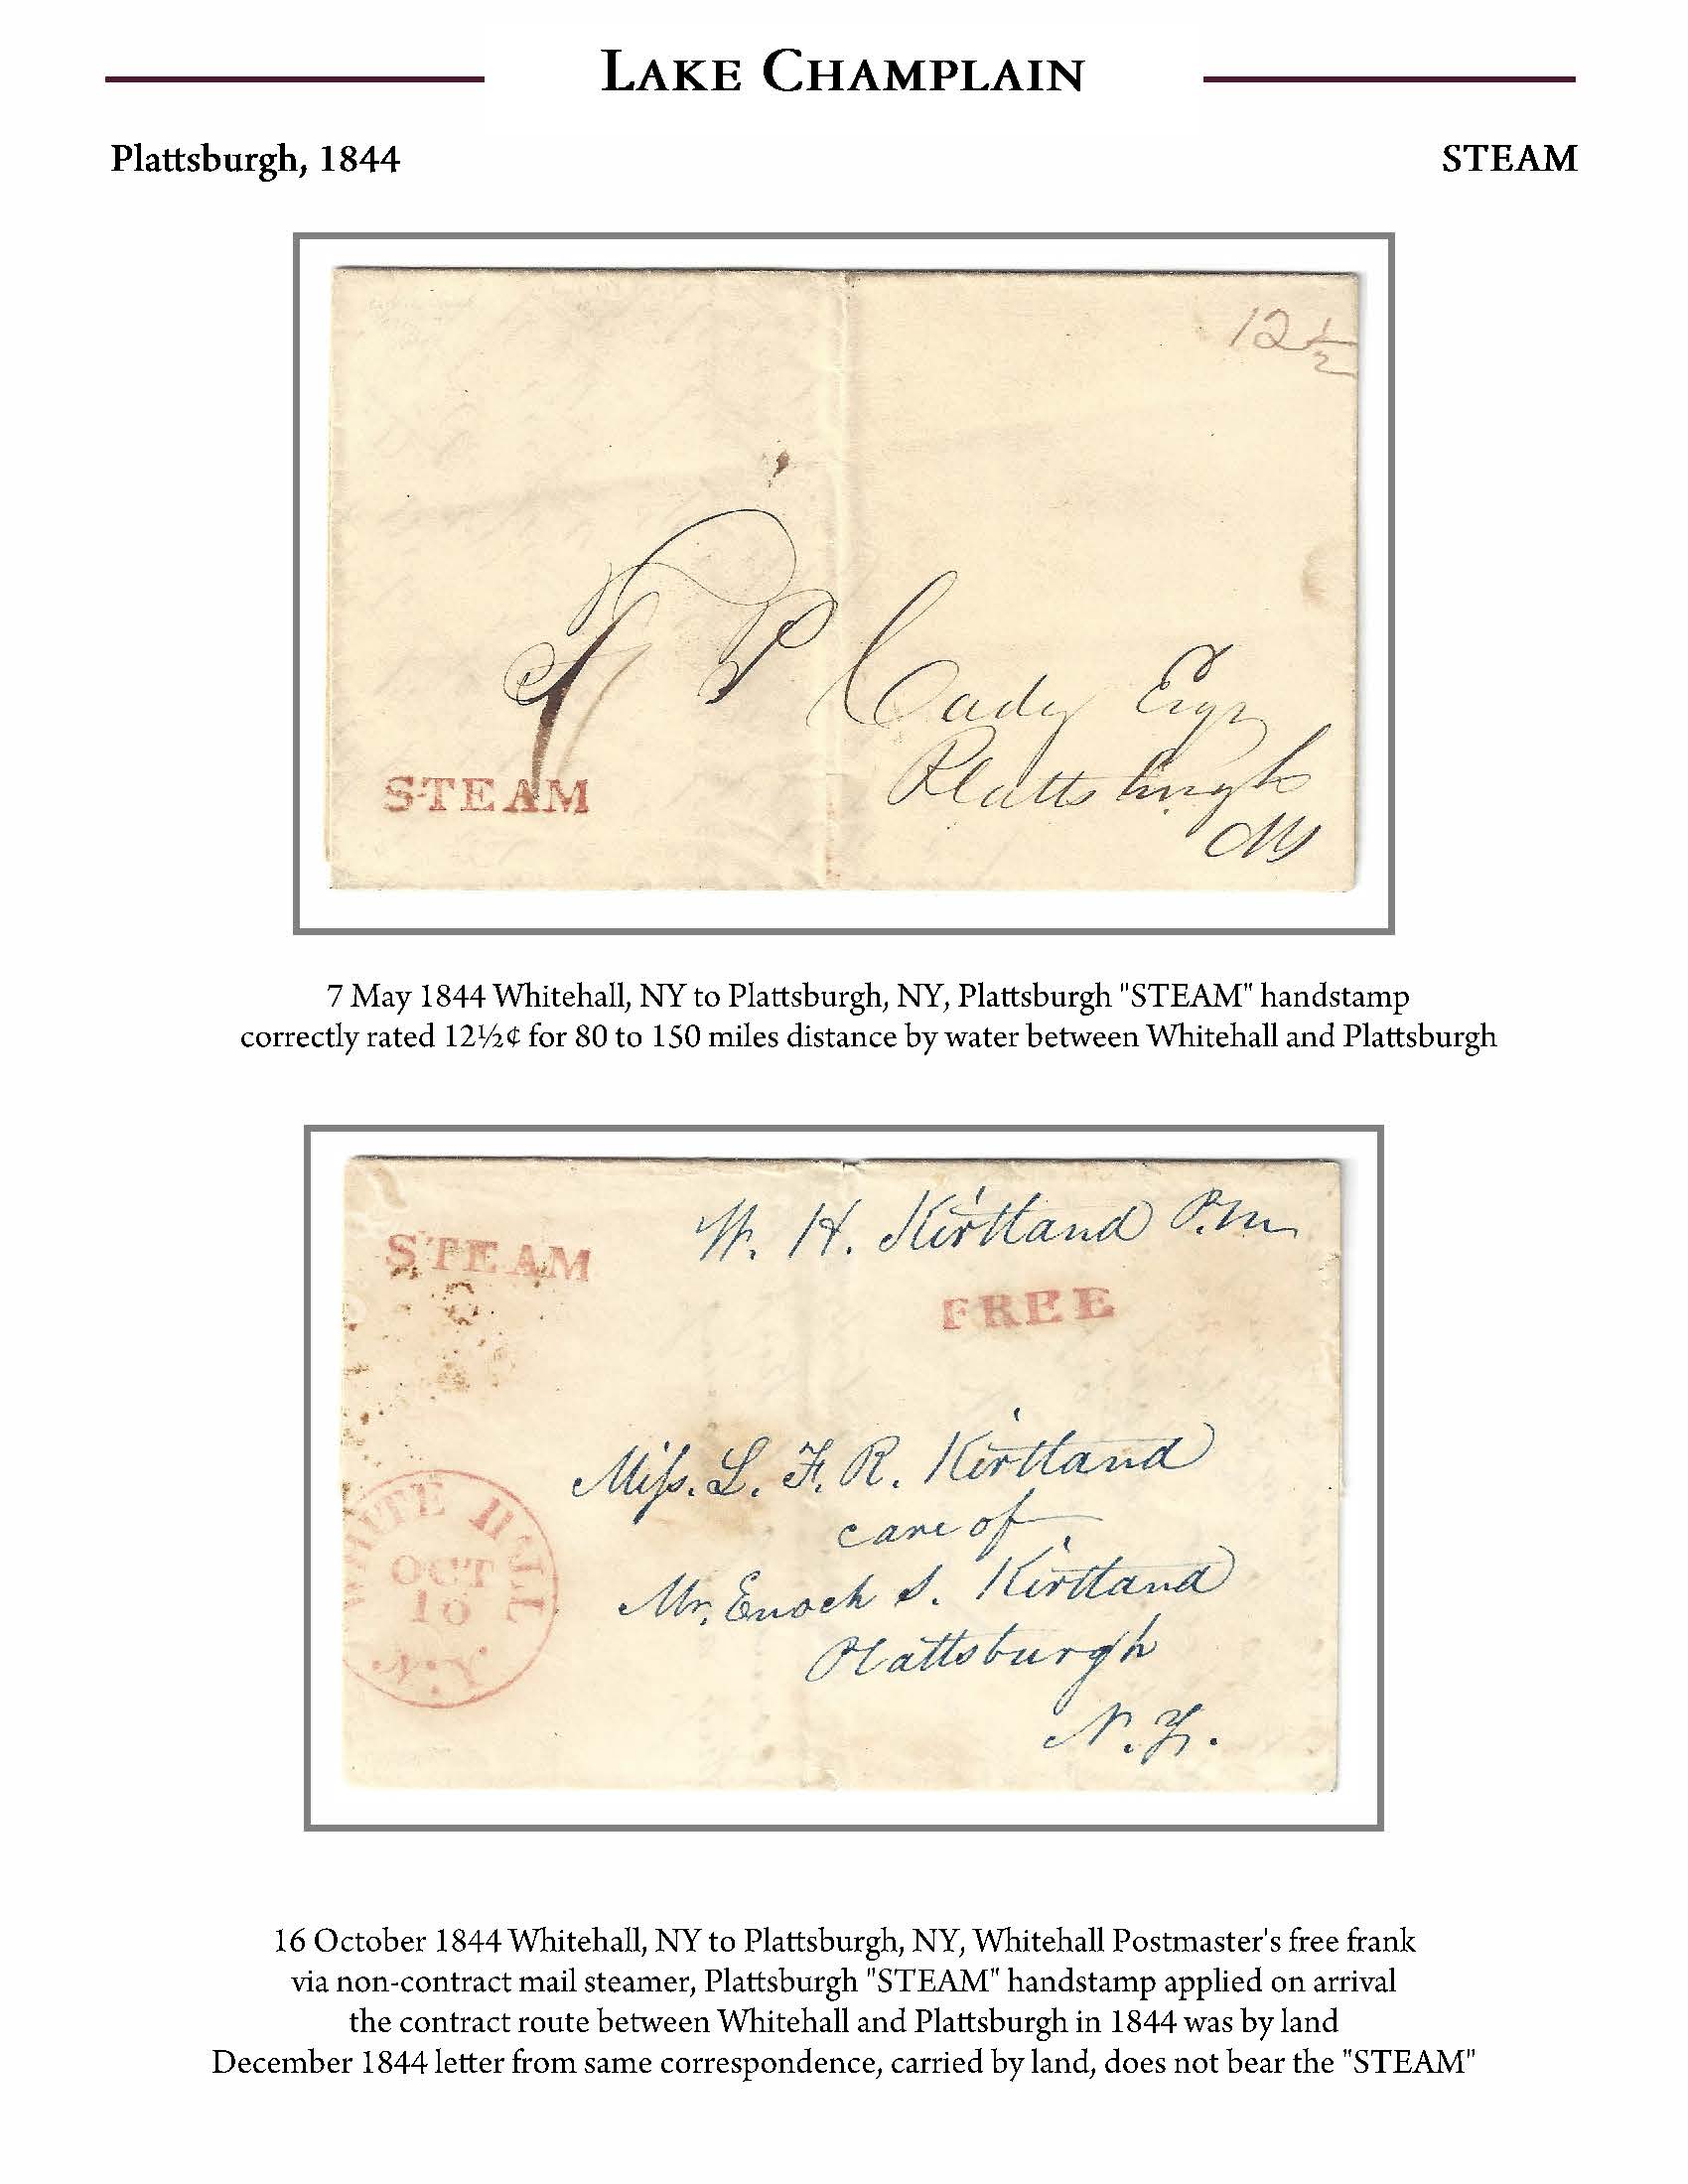 LAKE CHAMPLAIN
Plattsburgh, 1844
STEAM
12 1/2
P Cady Esqr
Plattsburgh
NY
STEAM
7 May 1844 Whitehall, NY to Plattsburgh, NY, Plattsburgh "STEAM" handstamp
correctly rated 12½¢ for 80 to 150 miles distance by water between Whitehall and Plattsburgh
W. H. Kirtland P.M.
STEAM
FREE
Miss. L. F. R. Kirtland
care of
Mr. Enoch S. Kirtland
Plattsburgh
N. Y.
WHITE HALL
OCT
16
N.Y.
16 October 1844 Whitehall, NY to Plattsburgh, NY, Whitehall Postmaster's free frank
via non-contract mail steamer, Plattsburgh "STEAM" handstamp applied on arrival
the contract route between Whitehall and Plattsburgh in 1844 was by land
December 1844 letter from same correspondence, carried by land, does not bear the "STEAM"